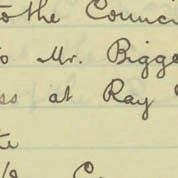 to the Counci
to Mr. Bigge
ss at Ray
te